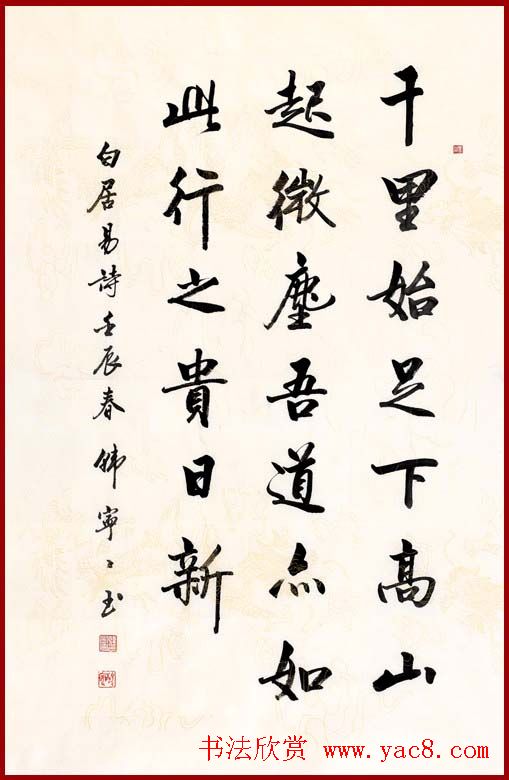 千里始足下高山
起微塵吾道亦如
此行之貴日新
白居易詩壬辰春韩寧〻
书法欣赏 www.yac8.com